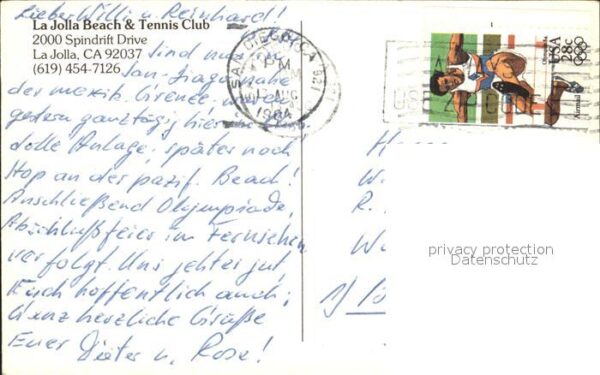 Lieber Willi u. Reinhard!
La Jolla Beach & Tennis Club
2000 Spindrift Drive
La Jolla, CA 92037
(619) 454-7126
Sind nun
San Diego nahe
der mexik. Grenze,
gestern ganztägig hier
tolle Anlage, später noch
Hop an der pazif. Beach!
Anschließend Olympiade,
Abschlußfeier im Fernsehen
verfolgt. Uns geht es gut,
Euch hoffentlich auch;
Ganz herzliche Grüße
Euer Dieter u. Rose!
SAN DIEGO CA
PM
AUG
1984
921
USE ZIP CODE
USA 28c
Olympics 84
Airmail
privacy protection
Datenschutz